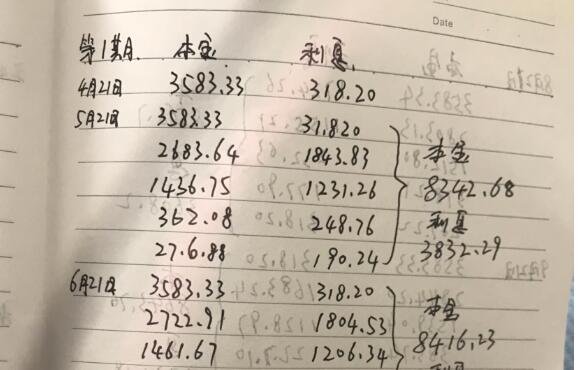 Date
第1期 本金 利息
4月21日 3583.33 318.20
5月21日 3583.33 31.820
2683.64 1843.83 本金
1436.75 1231.26 8342.68
362.08 248.76 利息
27.6.88 190.24 3832.29
6月21日 3583.33 318.20 本金
2722.91 1804.53 8416.23
1461.67 1206.34